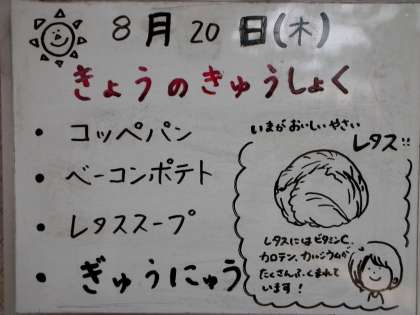 8月20日(木)
きょうのきゅうしょく
・コッペパン
・ベーコンポテト
・レタススープ
・ぎゅうにゅう
いまがおいしいやさい
レタス!!
レタスにはビタミンC、
カロテン、カルシウムが
たくさんふくまれて
います!